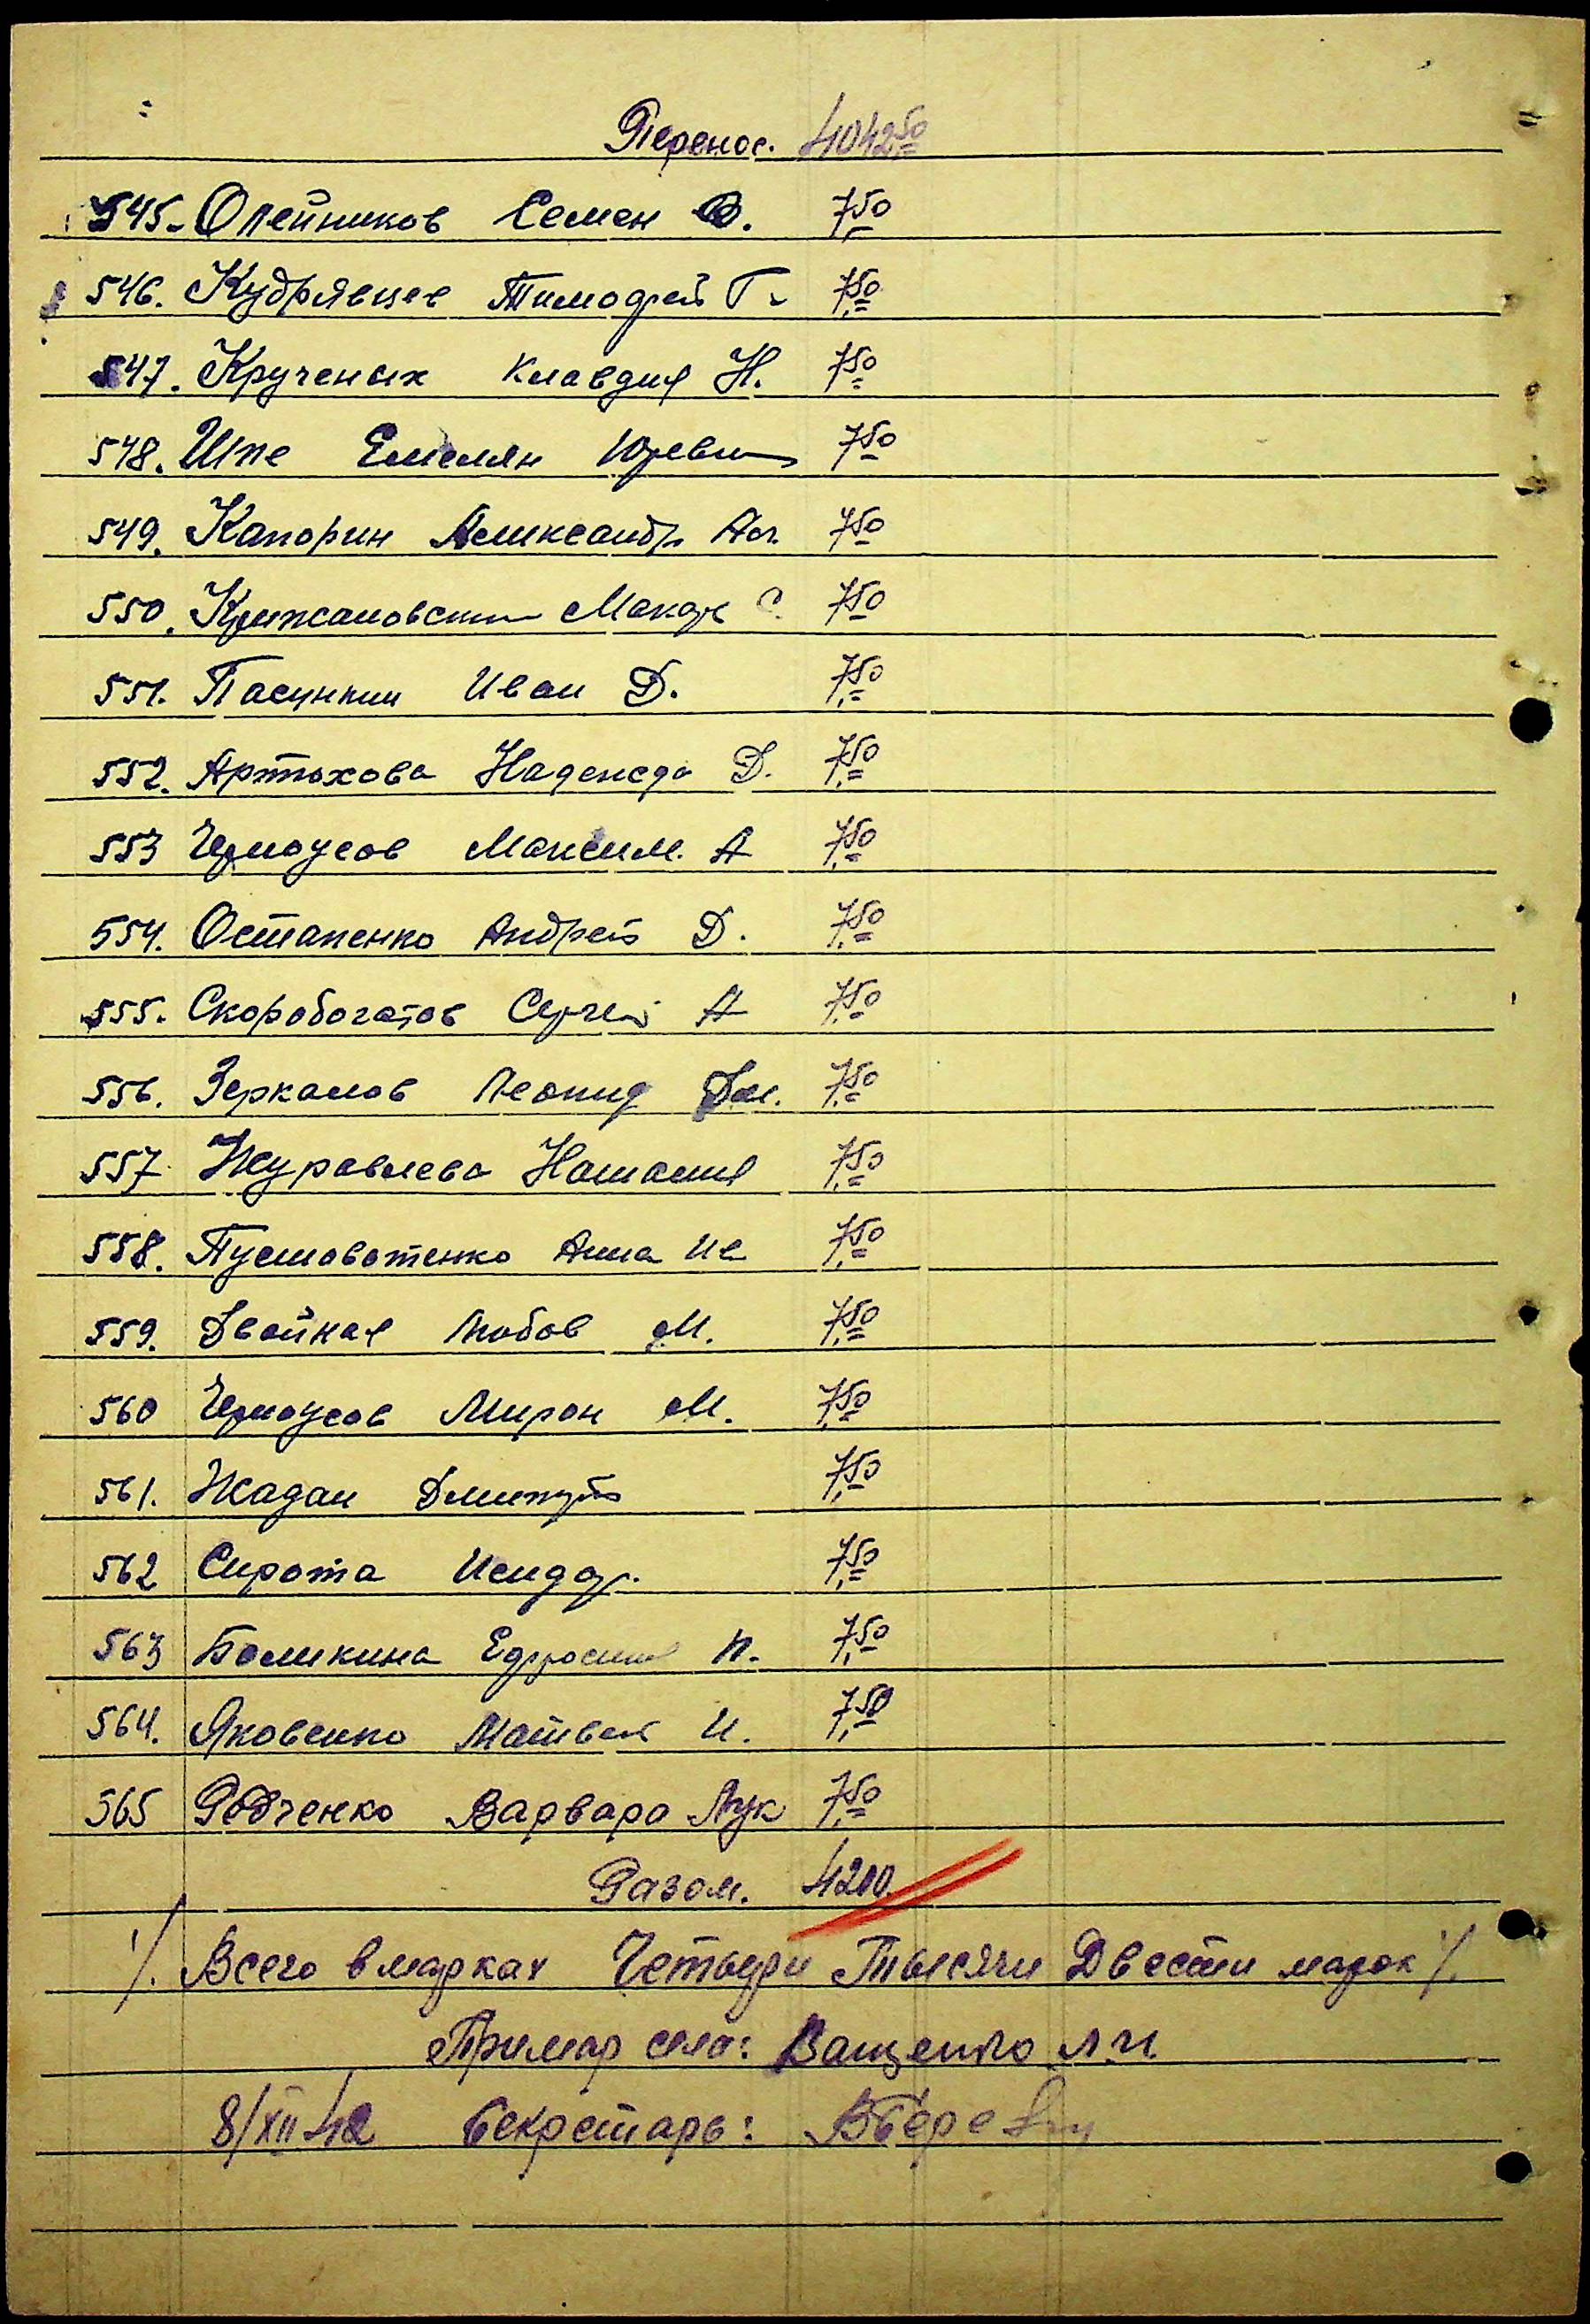 Перенос. 4042,50
545. Олейников Семен В. 7,50
546. Кудрявцев Тимофей Г. 7,50
547. Крученых Клавдия Н. 7,50
548. Шпе Емелян Юревич 7,50
549. Капорин Аликсандр 7,50
550. Крижановский Макар С. 7,50
551. Пасункин Иван Д. 7,50
552. Артюхова Надежда Д. 7,50
553 Черноусов Максим А 7,50
554. Остапенко Андрей Д. 7,50
555. Скоробогатов Сергей А 7,50
556. Зеркалов Леонид Дм. 7,50
557 Журавлева Наталия 7,50
558. Пустоватенко Анна Ив 7,50
559. Двойная Любов М. 7,50
560 Черноусов Мирон М. 7,50
561. Жадан Дмитрий 7,50
562 Сирота Исидор. 7,50
563 Баликина Ефросиния П. 7,50
564. Яковенко Матвей И. 7,50
565 Родченко Варвара Лук 7,50
Разом. 4200
·/. Всего в марках Четыри Тысячи Двести марок ·/.
Примар села: Ващенко
8/XII 42 Секретарь: